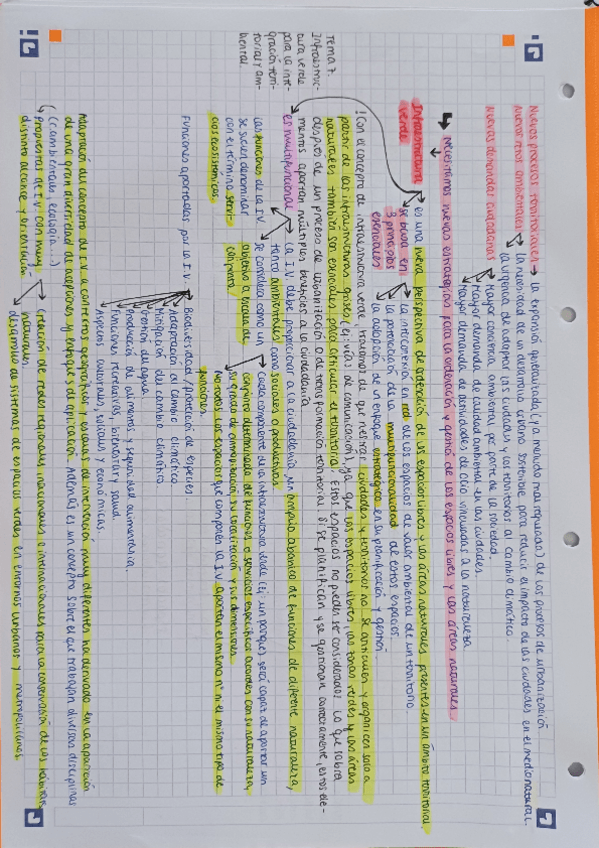 Nuevos procesos territoriales → La expansión generalizada (y a menudo mal regulada) de los procesos de urbanización
Nuevos retos ambientales → La necesidad de un desarrollo urbano sostenible para reducir el impacto de las ciudades en el medio natural.
La urgencia de adaptar las ciudades y los territorios al cambio climático.
Nuevas demandas ciudadanas → Mayor conciencia ambiental por parte de la sociedad.
Mayor demanda de calidad ambiental en las ciudades.
Mayor demanda de actividades de ocio vinculadas a la naturaleza
↳ Necesitamos nuevas estrategias para la ordenación y gestión de los espacios libres y las áreas naturales
TEMA 7:
Infraestruc-
tura verde
para la inte-
gración terri-
torial y am-
biental.
Infraestructura
verde
es una nueva perspectiva de ordenación de los espacios libres y las áreas naturales presentes en un ámbito territorial.
se basa en
3 principios
esenciales
La interconexión en red de los espacios de valor ambiental de un territorio.
La promoción de la multifuncionalidad de estos espacios.
La adopción de un enfoque estratégico en su planificación y gestión.
! Con el concepto de infraestructura verde tratamos de que nuestras ciudades y territorios no se articulen y organicen solo a
partir de las infraestructuras grises (ej: vías de comunicación), ya que los espacios libres, las zonas verdes y las áreas
naturales también son esenciales para articular el territorio! Estos espacios no pueden ser considerados lo que sobra
después de un proceso de urbanización o de transformación territorial. Si se planifican y se gestionan correctamente, estos ele-
mentos aportan múltiples beneficios a la ciudadanía
es multifuncional
La I.V. debe proporcionar a la ciudadanía un amplio abanico de funciones de diferente naturaleza,
tanto ambientales como sociales o productivas.
Las funciones de la I.V.
se suelen denominar
con el término servi-
cios ecosistémicos.
Se considera como un
objetivo a escala de
conjunto
cada componente de la infraestructura verde (ej: un parque) será capaz de aportar un
conjunto determinado de funciones o servicios específicos acordes con su naturaleza,
su grado de antropización, su localización y sus dimensiones.
No todos los espacios que componen la I.V. aportan el mismo nº ni el mismo tipo de
funciones.
Funciones aportadas por la I.V.
Biodiversidad / protección de especies
Adaptación al cambio climático
Mitigación del cambio climático
Gestión del agua
Producción de alimentos y seguridad alimentaria.
Funciones recreativas, bienestar y salud.
Aspectos culturales, sociales y económicas.
Adaptación del concepto de I.V. a contextos geográficos y escalas de intervención muy diferentes ha derivado en la aparición
de una gran diversidad de acepciones y enfoques de aplicación. Además es un concepto sobre el que trabajan diversas disciplinas
(urbanísticas, ecología ...)
↳ Propuestas de I.V. con muy
distinto alcance y orientación
Creación de redes regionales, nacionales e internacionales para la conservación de los hábitats
naturales.
desarrollo de sistemas de espacios verdes en entornos urbanos y metropolitanos.